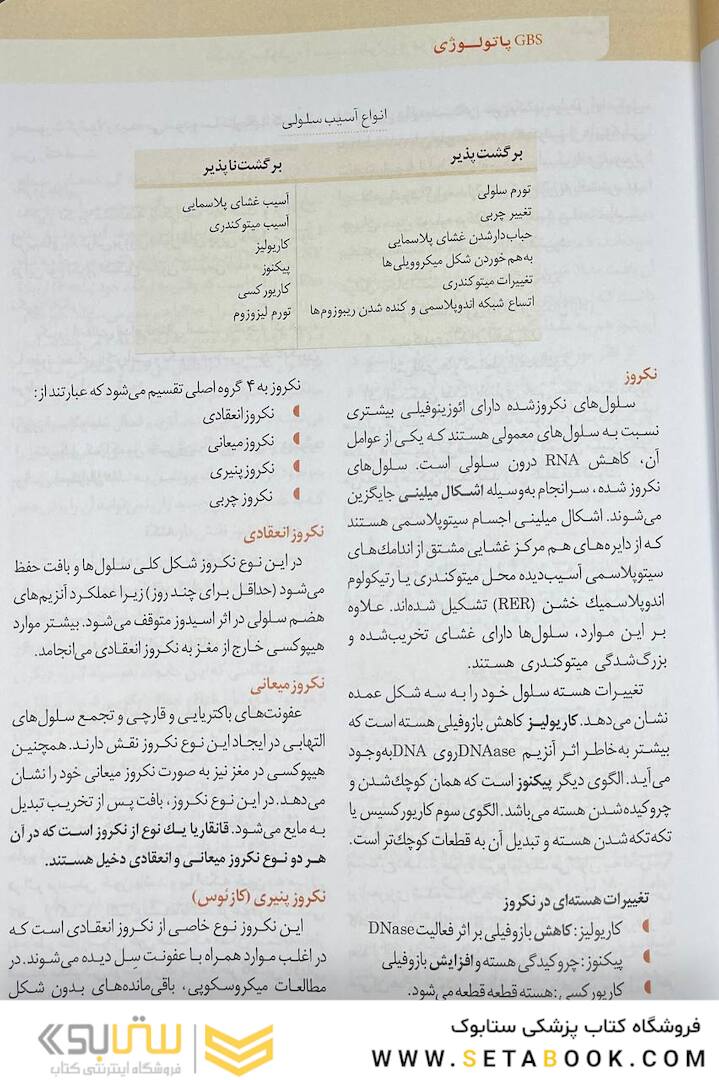 GBS پاتولوژی
انواع آسیب سلولی
برگشت‌پذیر
تورم سلولی
تغییر چربی
حباب‌دارشدن غشای پلاسمایی
به‌هم‌خوردن شکل میکروویلی‌ها
تغییرات میتوکندری
اتساع شبکه اندوپلاسمی و کنده شدن ریبوزوم‌ها
برگشت‌ناپذیر
آسیب غشای پلاسمایی
آسیب میتوکندری
کاریولیز
پیکنوز
کاریورکسی
تورم لیزوزوم
نکروز
سلول‌های نکروزشده دارای ائوزینوفیلی بیشتری
نسبت به سلول‌های معمولی هستند که یکی از عوامل
آن، کاهش RNA درون سلولی است. سلول‌های
نکروز شده، سرانجام به‌وسیله اشکال میلینی جایگزین
می‌شوند. اشکال میلینی اجسام سیتوپلاسمی هستند
که از دایره‌های هم مرکز غشایی مشتق از اندامک‌های
سیتوپلاسمی آسیب‌دیده محل میتوکندری یا رتیکولوم
اندوپلاسمیك خشن (RER) تشکیل شده‌اند. علاوه
بر این موارد، سلول‌ها دارای غشای تخریب‌شده و
بزرگ‌شدگی میتوکندری هستند.
تغییرات هسته سلول خود را به سه شکل عمده
نشان می‌دهد. کاریولیز کاهش بازوفیلی هسته است که
بیشتر به‌خاطر اثر آنزیم DNAase روی DNA به‌وجود
می‌آید. الگوی دیگر پیکنوز است که همان کوچك‌شدن و
چروکیده‌شدن هسته می‌باشد. الگوی سوم کاریورکسیس یا
تکه‌تکه‌شدن هسته و تبدیل آن به قطعات کوچك‌تر است.
تغییرات هسته‌ای در نکروز
کاریولیز: کاهش بازوفیلی بر اثر فعالیت DNase
پیکنوز: چروکیدگی هسته و افزایش بازوفیلی
کاریورکسی: هسته قطعه قطعه می‌شود.
نکروز به ۴ گروه اصلی تقسیم می‌شود که عبارتند از:
نکروز انعقادی
نکروز میعانی
نکروز پنیری
نکروز چربی
نکروز انعقادی
در این نوع نکروز شکل کلی سلول‌ها و بافت حفظ
می‌شود (حداقل برای چند روز) زیرا عملکرد آنزیم‌های
هضم سلولی در اثر اسیدوز متوقف می‌شود. بیشتر موارد
هیپوکسی خارج از مغز به نکروز انعقادی می‌انجامد.
نکروز میعانی
عفونت‌های باکتریایی و قارچی و تجمع سلول‌های
التهابی در ایجاد این نوع نکروز نقش دارند. همچنین
هیپوکسی در مغز نیز به صورت نکروز میعانی خود را نشان
می‌دهد. در این نوع نکروز، بافت پس از تخریب تبدیل
به مایع می‌شود. قانقاریا یك نوع از نکروز است که در آن
هر دو نوع نکروز میعانی و انعقادی دخیل هستند.
نکروز پنیری (کازئوس)
این نکروز نوع خاصی از نکروز انعقادی است که
در اغلب موارد همراه با عفونت سِل دیده می‌شوند. در
مطالعات میکروسکوپی، باقی‌مانده‌های بدون شکل
فروشگاه کتاب پزشکی ستابوک
WWW.SETABOOK.COM
ستابوک
فروشگاه اینترنتی کتاب